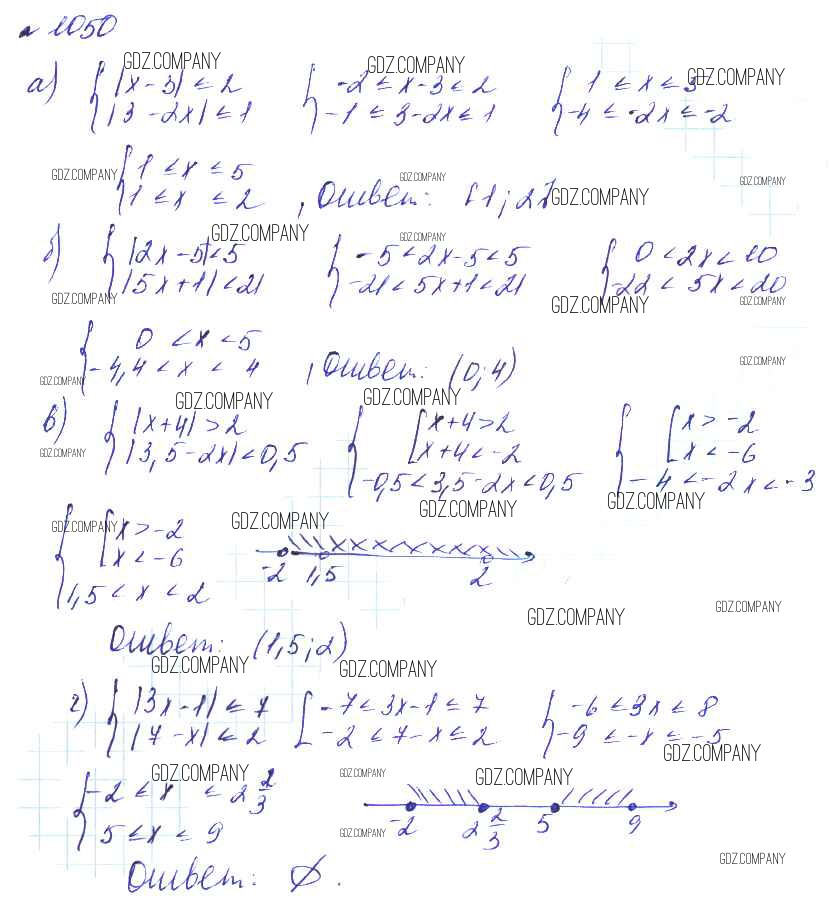 № 1050
GDZ.COMPANY GDZ.COMPANY GDZ.COMPANY
а) { |x - 3| ≤ 2 { -2 ≤ x - 3 ≤ 2 { 1 ≤ x ≤ 3
|3 - 2x| ≤ 1 -1 ≤ 3 - 2x ≤ 1 -4 ≤ -2x ≤ -2
{ 1 ≤ x ≤ 5
GDZ.COMPANY GDZ.COMPANY GDZ.COMPANY
1 ≤ x ≤ 2 , Ответ: [1; 2] GDZ.COMPANY
GDZ.COMPANY GDZ.COMPANY
б) { |2x - 5| < 5 { -5 < 2x - 5 < 5 { 0 < 2x < 10
|5x + 1| < 21 -21 < 5x + 1 < 21 -22 < 5x < 20
GDZ.COMPANY GDZ.COMPANY GDZ.COMPANY
{ 0 < x < 5
-4,4 < x < 4 , Ответ: (0; 4) GDZ.COMPANY
GDZ.COMPANY
GDZ.COMPANY GDZ.COMPANY
в) { |x + 4| > 2 { [ x + 4 > 2 { [ x > -2
|3,5 - 2x| < 0,5 x + 4 < -2 x < -6
GDZ.COMPANY
-0,5 < 3,5 - 2x < 0,5 -4 < -2x < -3
GDZ.COMPANY GDZ.COMPANY
GDZ.COMPANY GDZ.COMPANY
{ [ x > -2
x < -6
-2 1,5 2
1,5 < x < 2
GDZ.COMPANY GDZ.COMPANY
Ответ: (1,5; 2)
GDZ.COMPANY GDZ.COMPANY
г) { |3x - 1| ≤ 7 [ -7 ≤ 3x - 1 ≤ 7 { -6 ≤ 3x ≤ 8
|7 - x| ≤ 2 -2 ≤ 7 - x ≤ 2 -9 ≤ -x ≤ -5
GDZ.COMPANY
GDZ.COMPANY GDZ.COMPANY GDZ.COMPANY
{ -2 ≤ x ≤ 2 2/3
-2 2 2/3 5 9
5 ≤ x ≤ 9 GDZ.COMPANY
GDZ.COMPANY
Ответ: ∅.